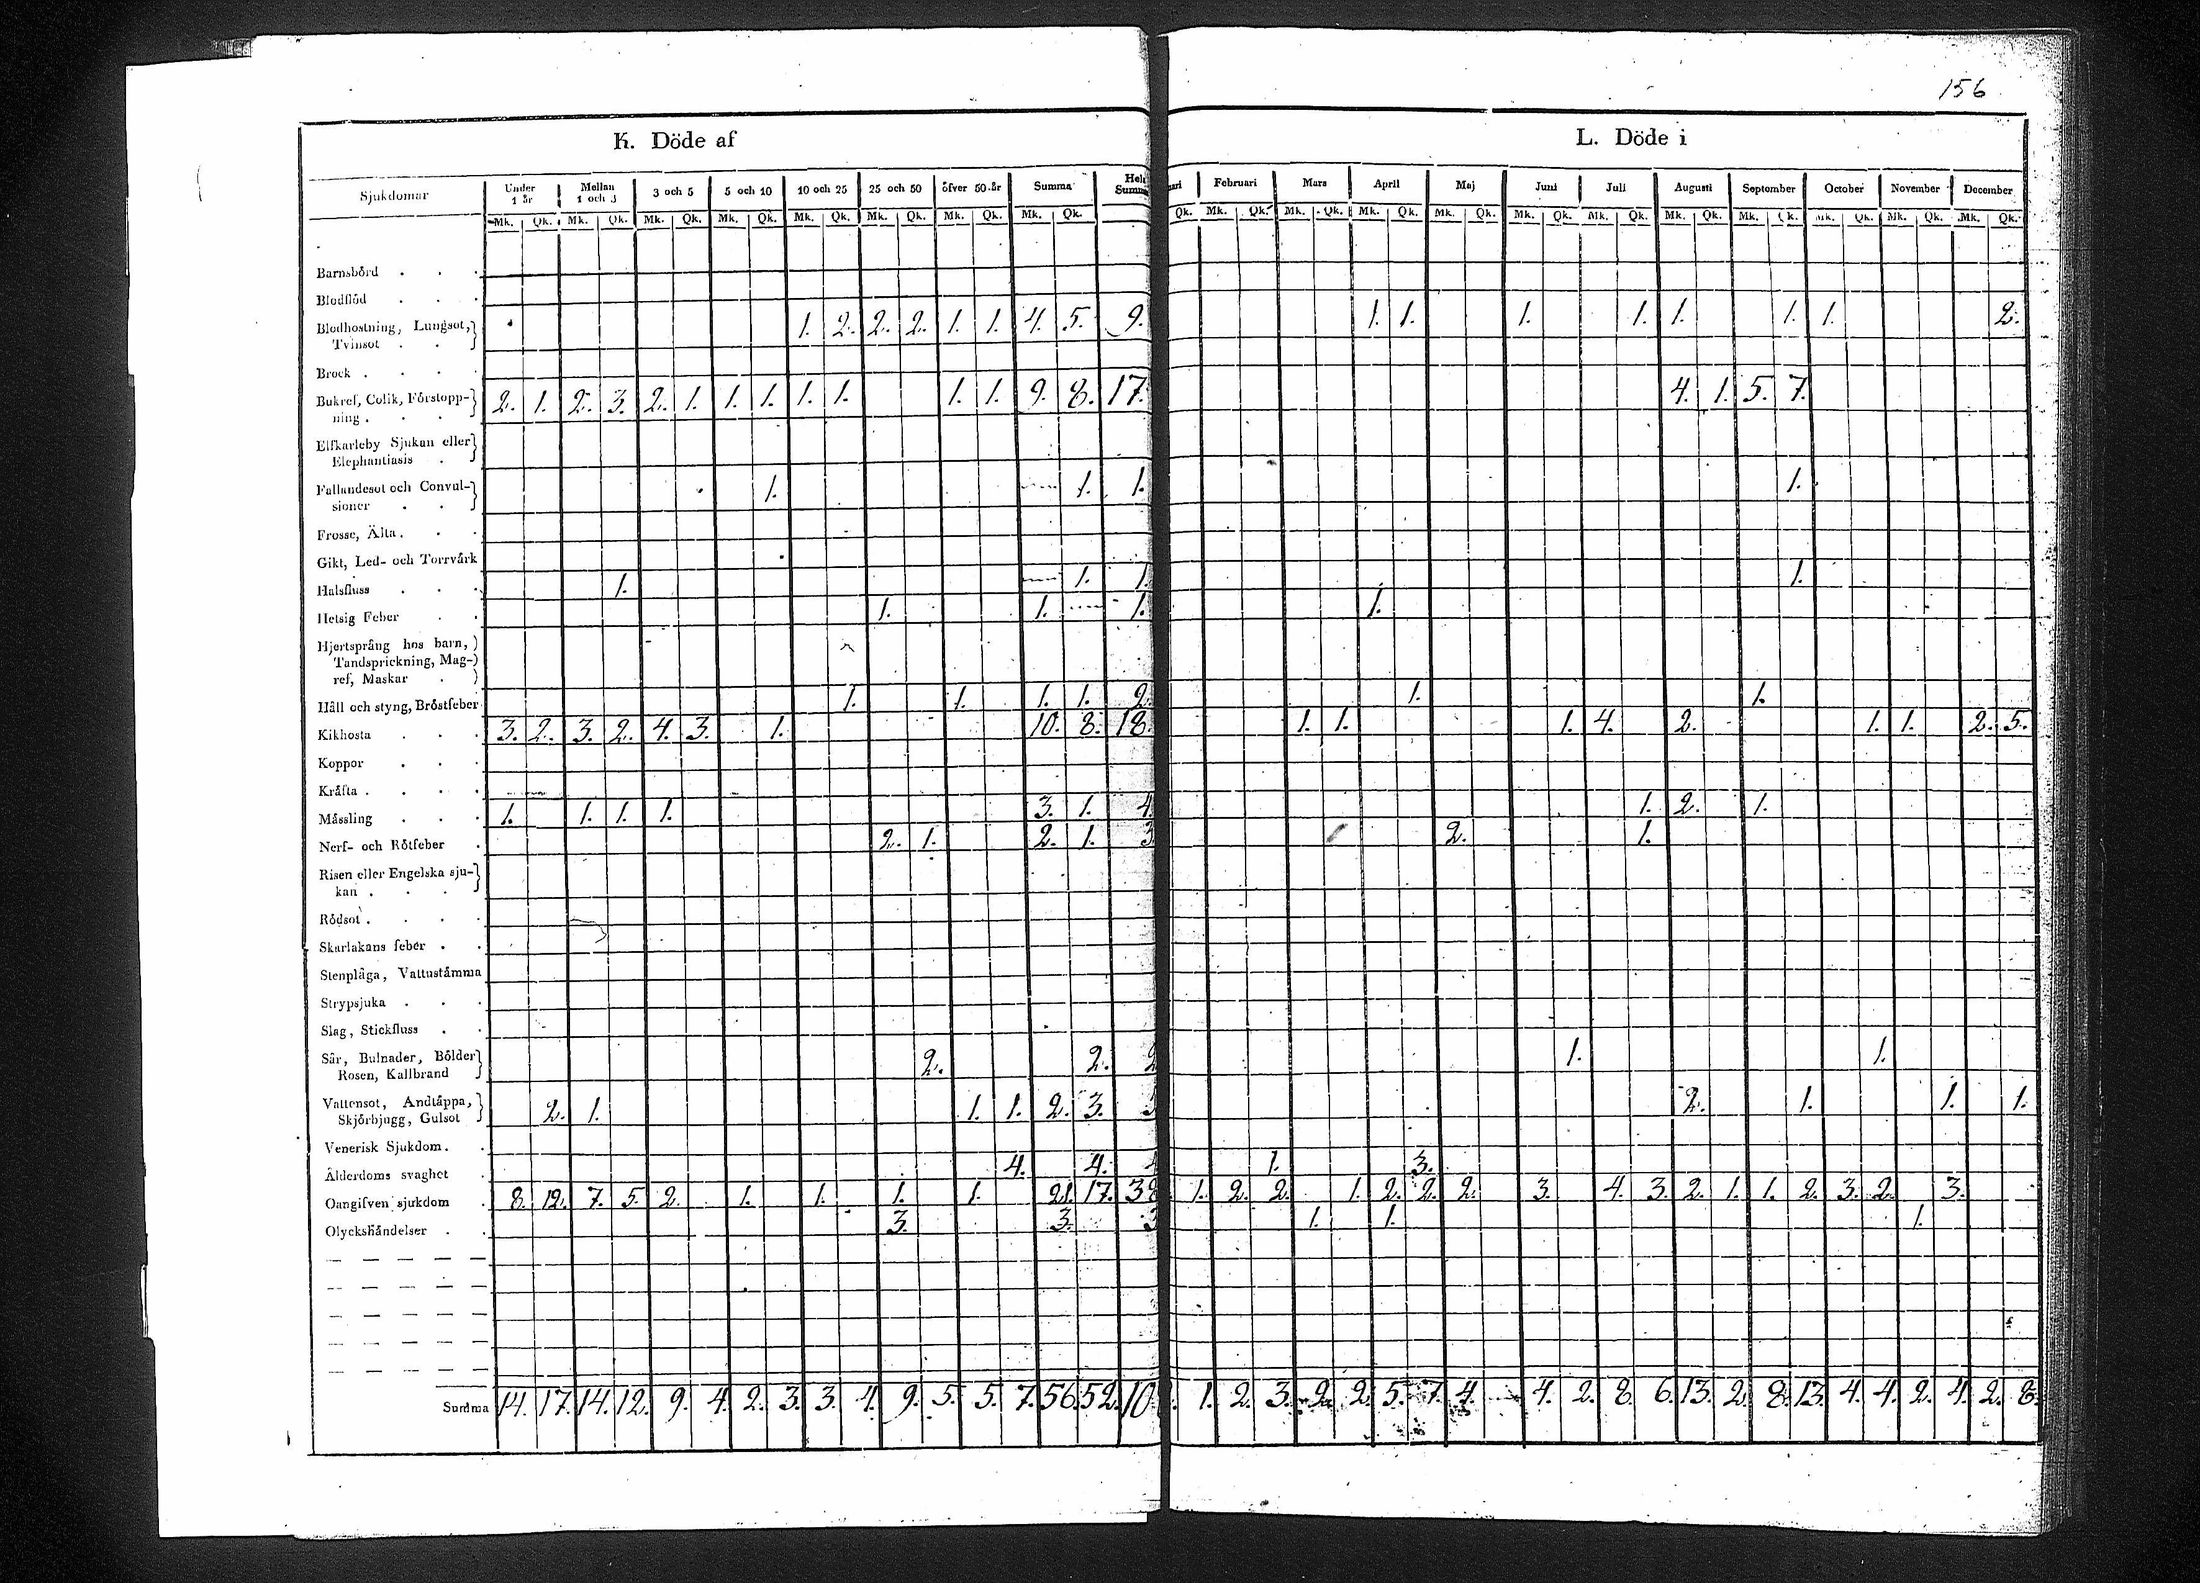 156
K. Döde af
L. Döde i
Sjukdomar Under 1 år Mellan 1 och 3 3 och 5 5 och 10 10 och 25 25 och 50 öfver 50 år Summa Hel Summa
Februari Mars April Maj Juni Juli Augusti September October November December
Mk. Qk. Mk. Qk. Mk. Qk. Mk. Qk. Mk. Qk. Mk. Qk. Mk. Qk. Mk. Qk.
Qk. Mk. Qk. Mk. Qk. Mk. Qk. Mk. Qk. Mk. Qk. Mk. Qk. Mk. Qk. Mk. Qk. Mk. Qk. Mk. Qk. Mk. Qk.
Barnsbörd
Blodflöd
Blodhostning, Lungsot, 1. 2. 2. 2. 1. 1. 4. 5. 9. 1. 1. 1. 1. 1. 1. 1. 2.
Tvinsot
Brock
Bukref, Colik, Förstopp- 2. 1. 2. 3. 2. 1. 1. 1. 1. 1. 1. 1. 9. 8. 17. 4. 1. 5. 7.
ning
Elfkarleby Sjukan eller
Elephantiasis
Fallandesot och Convul- 1. 1. 1. 1.
sioner
Frosse, Älta
Gikt, Led- och Torrvärk
Halsfluss 1. 1. 1. 1.
Hetsig Feber 1. 1. 1. 1.
Hjertsprång hos barn,
Tandsprickning, Mag-
ref, Maskar
Håll och styng, Bröstfeber 1. 1. 1. 1. 2. 1. 1.
Kikhosta 3. 2. 3. 2. 4. 3. 1. 10. 8. 18. 1. 1. 1. 4. 2. 1. 1. 2. 5.
Koppor
Kräfta
Mässling 1. 1. 1. 1. 3. 1. 4. 1. 2. 1.
Nerf- och Rötfeber 2. 1. 2. 1. 3 2. 1.
Risen eller Engelska sju-
kan
Rödsot
Skarlakans feber
Stenplåga, Vattustämma
Strypsjuka
Slag, Stickfluss
Sår, Bulnader, Bölder 2. 2. 2 1. 1.
Rosen, Kallbrand
Vattensot, Andtäppa, 2. 1. 1. 1. 2. 3. 2. 1. 1. 1.
Skjörbjugg, Gulsot
Venerisk Sjukdom
Ålderdoms svaghet 4. 4. 1. 3.
Oangifven sjukdom 8. 12. 7. 5. 2. 1. 1. 1. 1. 21. 17. 38 1. 2. 2. 1. 2. 2. 2. 3. 4. 3. 2. 1. 1. 2. 3. 2. 3.
Olyckshändelser 3. 3. 3 1. 1. 1.
Summa 14. 17. 14. 12. 9. 4. 2. 3. 3. 4. 9. 5. 5. 7. 56. 52. 10 1. 2. 3. 2. 2. 5. 7. 4. 4. 2. 8. 6. 13. 2. 8. 13. 4. 4. 2. 4. 2. 8.